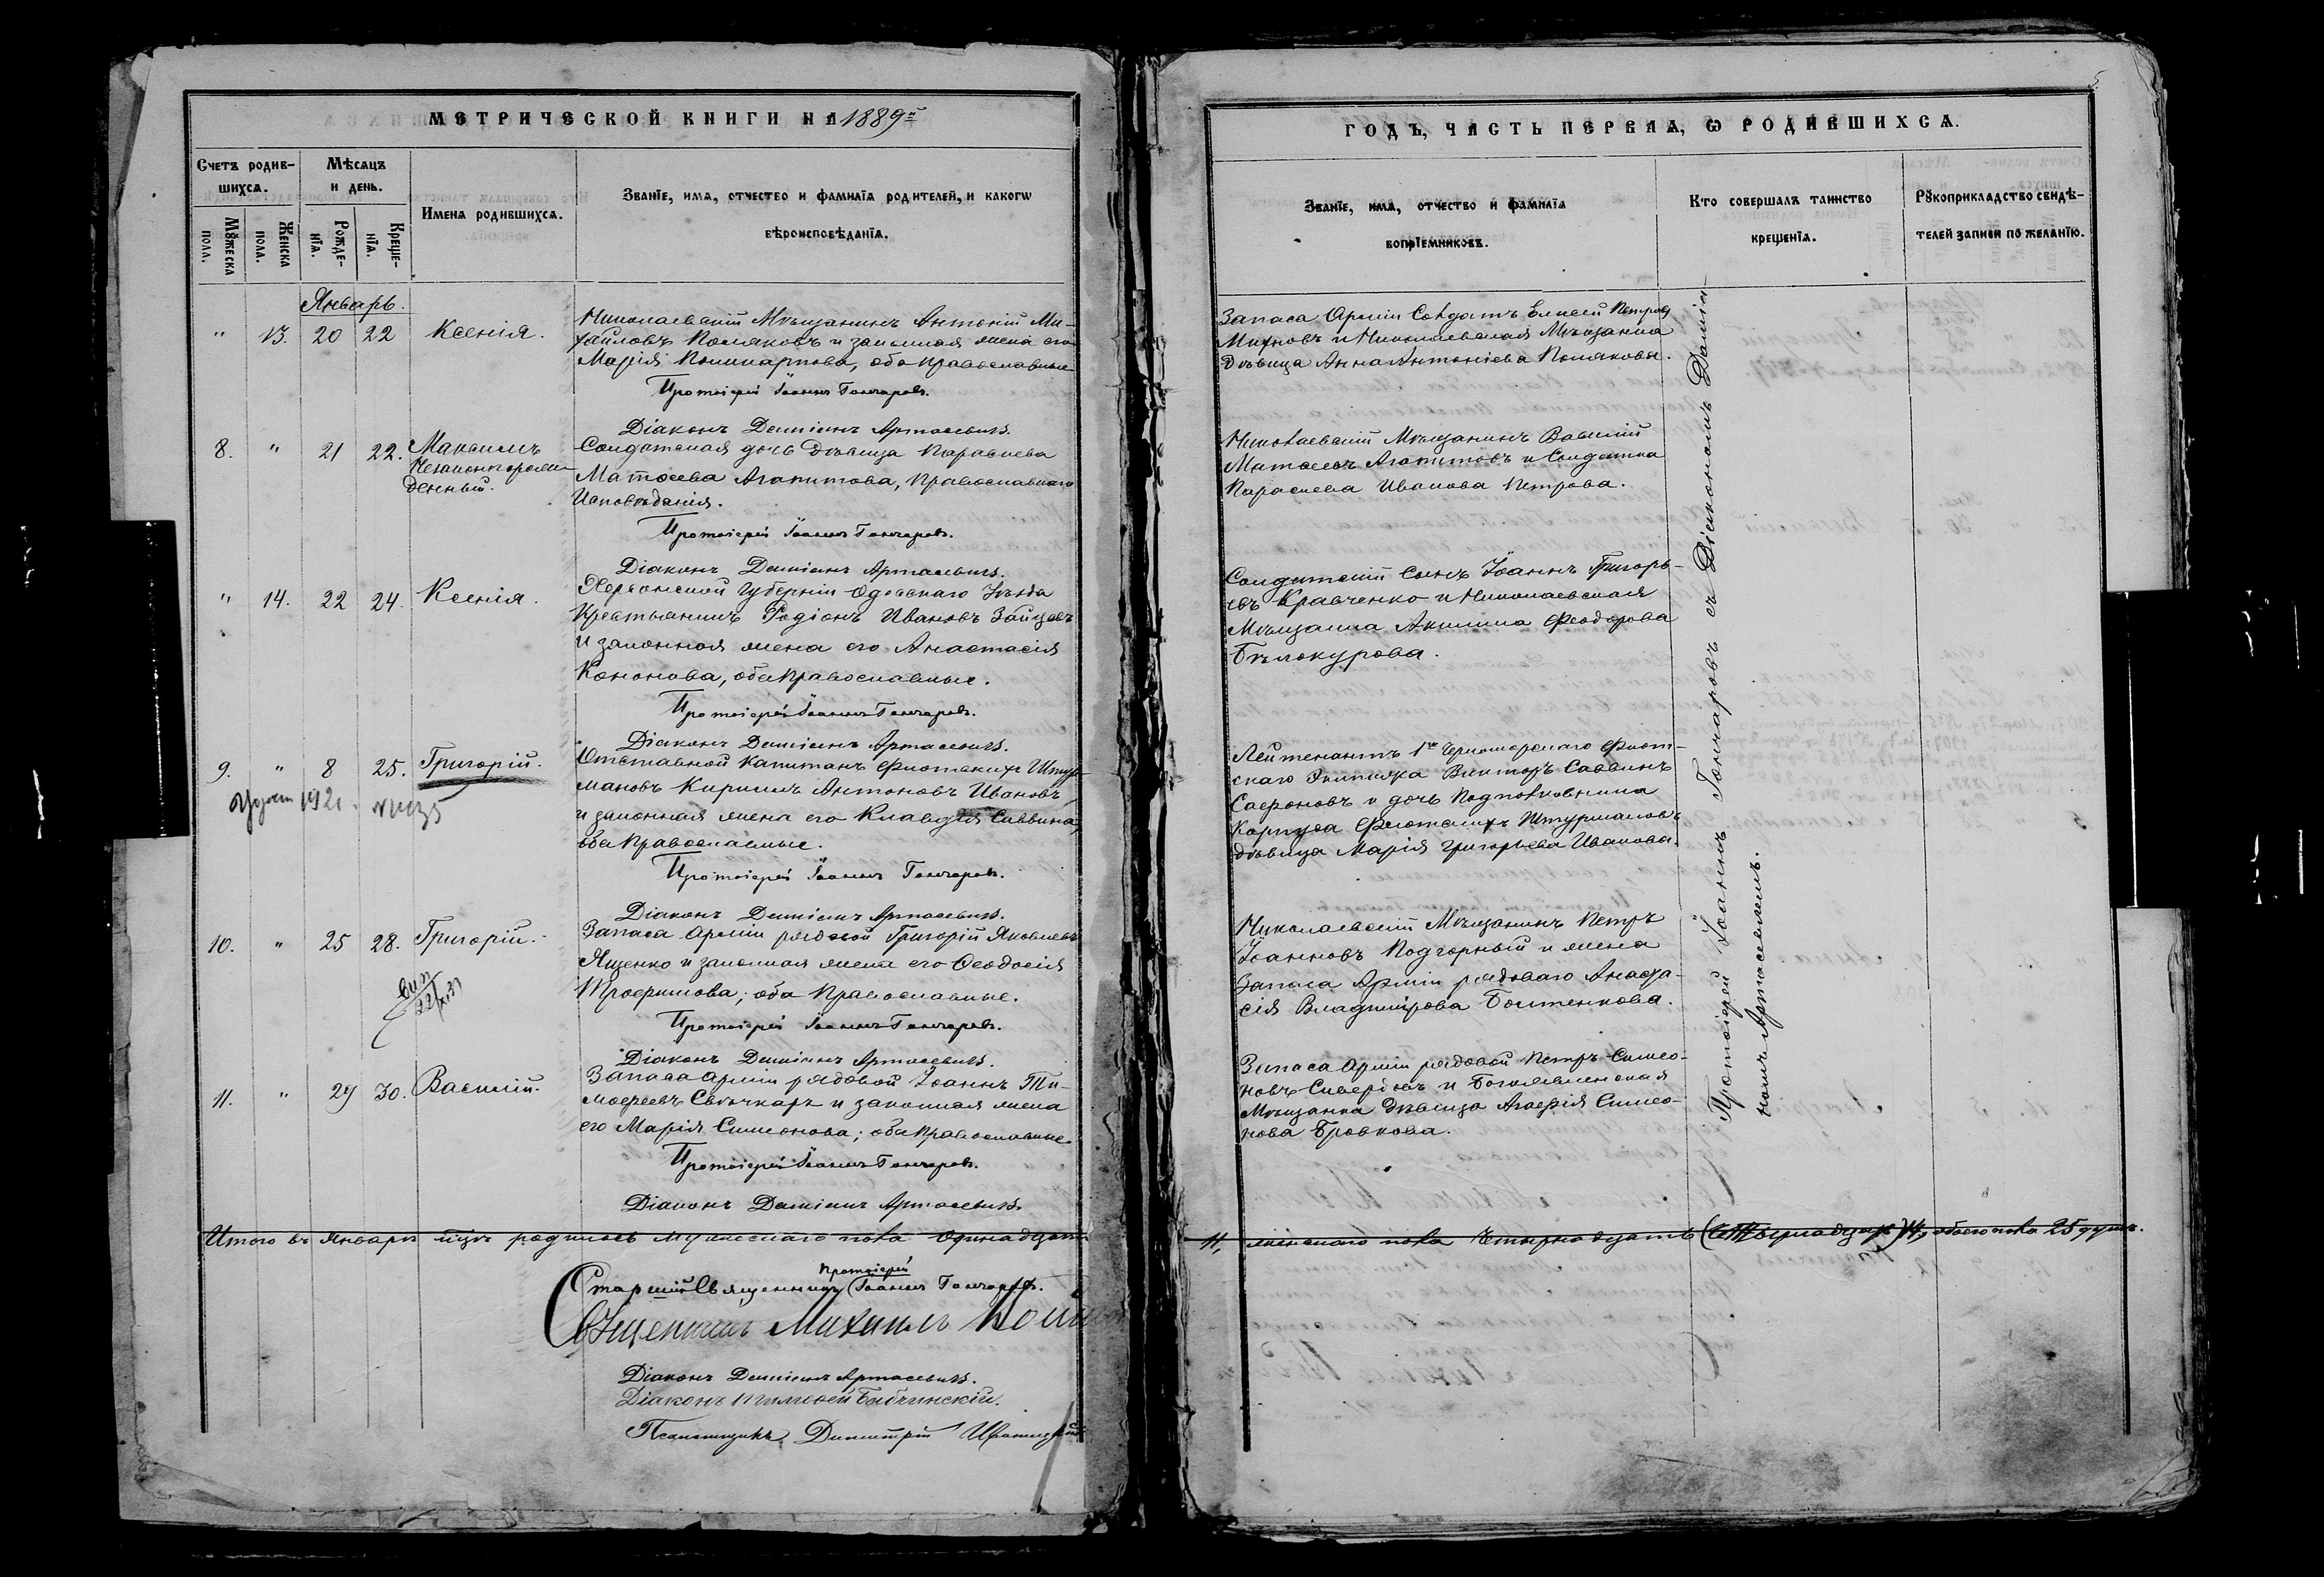 МЕТРИЧЕСКОЙ КНИГИ НА 1889й
Счетъ родив-
шихсѧ.
Мѣсѧцъ
и день.
Имена родившихсѧ.
Званїе, имѧ, отчество и фамилїѧ родителей, и какогѡ
вѣроисповѣданїѧ.
Мꙋжеска
пола.
Женска
пола.
Рожде-
нїѧ.
Креще-
нїѧ.
Январь.
" 13. 20 22 Ксенія.
Николаевскій Мѣщанинъ Антоній Ми-
хайловъ Поляковъ и законная жена его
Марія Поликарпова, оба православные
Протоіерей Іоаннъ Гончаровъ.
Діаконъ Даміанъ Артасевичъ.
8. " 21 22. Максимъ
Незаконнорож-
денный.
Солдатская дочь Дѣвица Параскева
Матѳеева Агапитова, Православнаго
Исповѣданія.
Протоіерей Іоаннъ Гончаровъ.
Діаконъ Даміанъ Артасевичъ.
" 14. 22 24. Ксенія.
Херсонской Губерніи Одесскаго Уѣзда
Крестьянинъ Родіонъ Ивановъ Зайцевъ
и законная жена его Анастасія
Кононова, оба Православные.
Протоіерей Іоаннъ Гончаровъ.
Діаконъ Даміанъ Артасевичъ.
9. " 8 25. Григорій.
Отставной Капитанъ Флотскихъ Штур-
мановъ Кириллъ Антоновъ Ивановъ
и законная жена его Клавдія Саввина,
оба Православные.
Протоіерей Іоаннъ Гончаровъ.
Діаконъ Даміанъ Артасевичъ.
10. " 25 28. Григорій.
Запаса Арміи рядовой Григорій Яковлевъ
Ященко и законная жена его Ѳеодосія
Трофимова; оба Православные.
Протоіерей Іоаннъ Гончаровъ.
Діаконъ Даміанъ Артасевичъ.
11. " 29 30. Василій.
Запаса Арміи рядовой Іоаннъ Ти-
моѳеевъ Свѣчкарь и законная жена
его Марія Симеонова; оба Православные
Протоіерей Іоаннъ Гончаровъ.
Діаконъ Даміанъ Артасевичъ.
Итого въ Январѣ м-цѣ родилось мужескаго пола одинадцать
Протоіерей
Старшій Священникъ Іоаннъ Гончаровъ.
Священникъ Михаилъ
Діаконъ Даміанъ Артасевичъ.
Діаконъ Тимоѳей Бабчинскій.
Псаломщикъ Димитрій
5
ГОДЪ, ЧАСТЬ ПЕРВАѦ, Ѡ РОДИВШИХСѦ.
Званїе, имѧ, отчество и фамилїѧ
воспрїемниковъ.
Кто совершалъ таинство
крещенїѧ.
Рꙋкоприкладство свидѣ-
телей записи по желанїю.
Запаса Арміи Солдатъ Елисей Петровъ
Михновъ и Николаевская Мѣщанка
Дѣвица Анна Антоніева Полякова.
Николаевскій Мѣщанинъ Василій
Матѳеевъ Агапитовъ и Солдатка
Параскева Иванова Петрова.
Солдатскій Сынъ Іоаннъ Григорь-
евъ Кравченко и Николаевская
Мѣщанка Акилина Ѳеодорова
Бѣлокурова.
Лейтенантъ 1го Черноморскаго Флот-
скаго Экипажа Викторъ Саввинъ
Сафоновъ и дочь Подполковника
Корпуса Флотскихъ Штурмановъ
дѣвица Марія Григорьева Иванова.
Николаевскій Мѣщанинъ Петръ
Іоанновъ Подгорный и жена
Запаса Арміи рядоваго Анаста-
сія Владимірова Болтенкова.
Запаса Арміи рядовой Петръ Симео-
новъ и Богоявленская
Мѣщанка Дѣвица Агафія Симео-
нова Бровкова.
Протоіерей Іоаннъ Гончаровъ съ Діакономъ Даміа-
номъ Артасевичемъ.
11, женскаго пола Четырнадцать (Четырнадцать) 14, обоего пола 25 душъ.